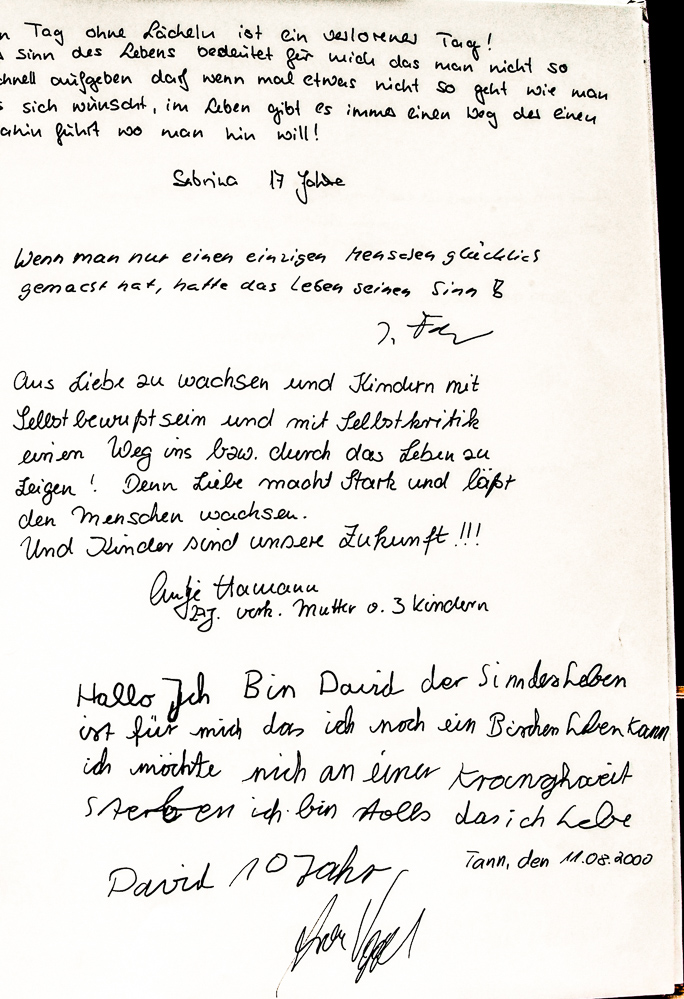 n Tag ohne Lächeln ist ein verlorener Tag!
sinn des Lebens bedeutet für mich das man nicht so
chnell aufgeben darf wenn mal etwas nicht so geht wie man
s sich wünscht, im Leben gibt es immer einen Weg der einen
ahin führt wo man hin will!
Sabrina 17 Jahre
Wenn man nur einen einzigen Menschen glücklich
gemacht hat, hatte das Leben seinen Sinn
Aus Liebe zu wachsen und Kindern mit
Selbstbewußtsein und mit Selbstkritik
einen Weg ins bzw. durch das Leben zu
zeigen! Denn Liebe macht Stark und läßt
den Menschen wachsen.
Und Kinder sind unsere Zukunft!!!
Antje Hamann
verh. Mutter v. 3 Kindern
Hallo Ich Bin David der Sinn des Leben
ist für mich das ich noch ein Bischen Leben kann
ich möchte nich an einer Krangheit
Sterben ich bin stolls das ich Lebe
David 10 Jahr
Tann, den 11.08.2000